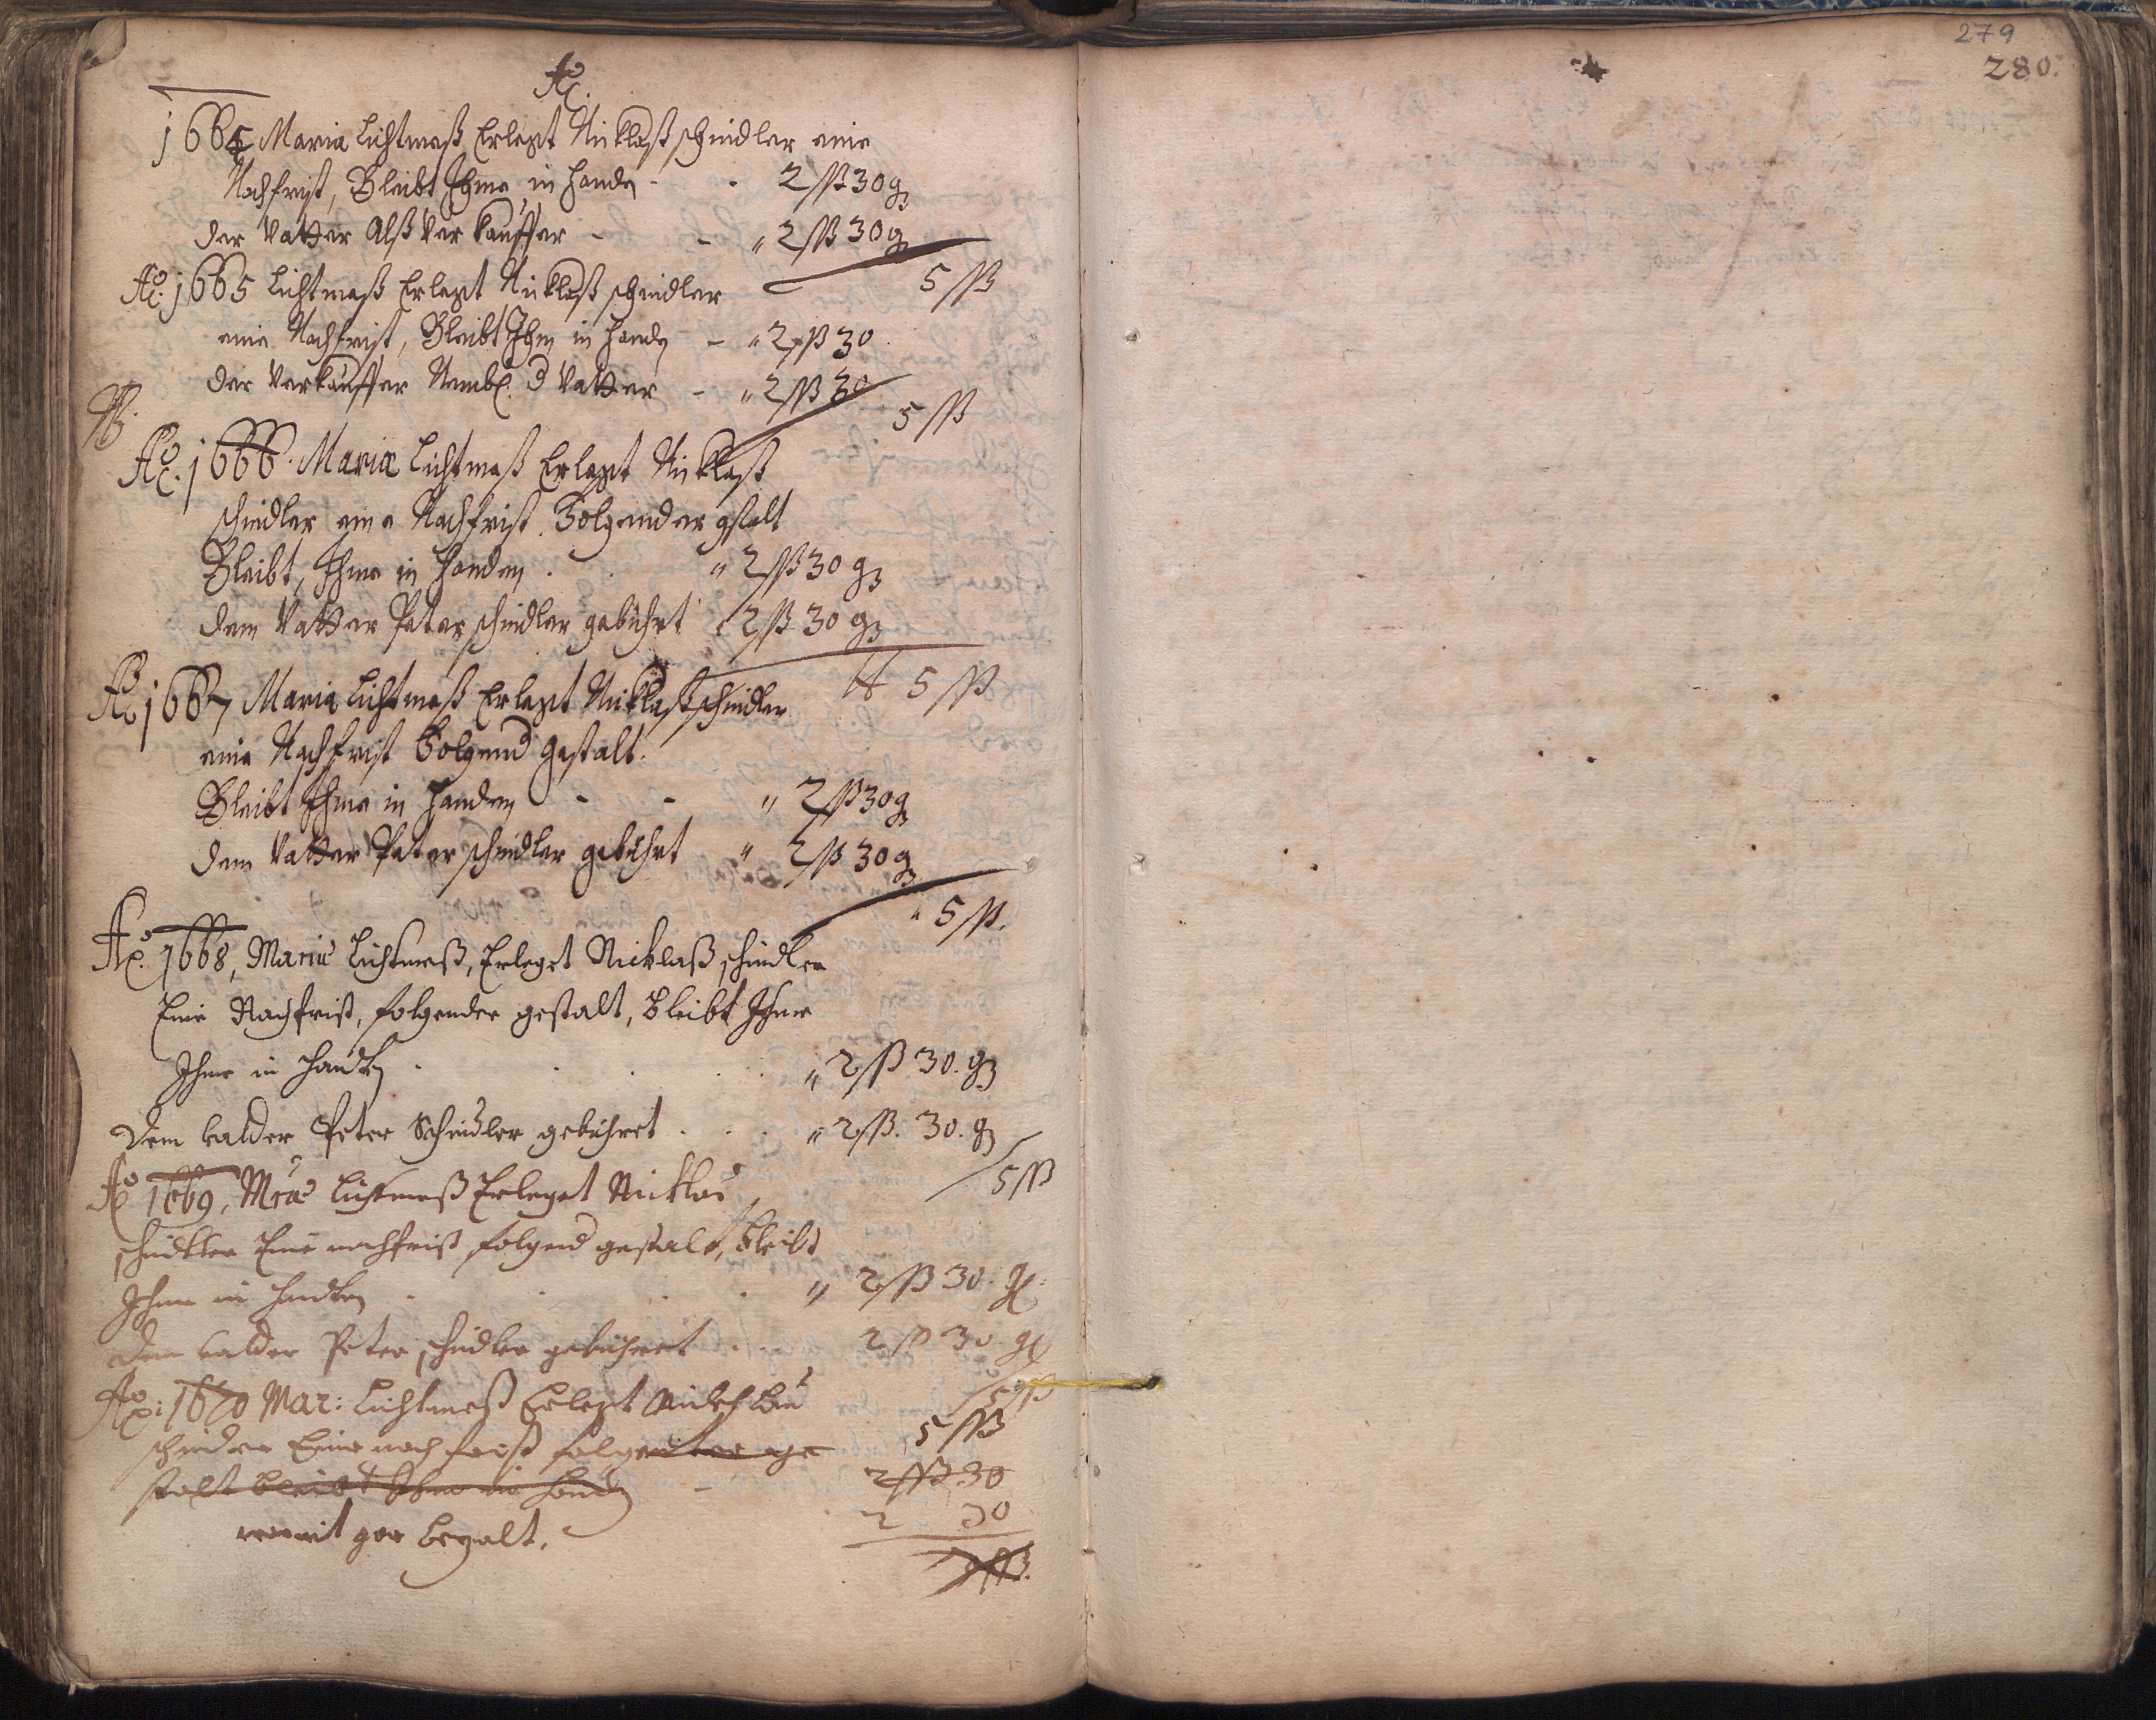 279
280.
Ao.
1664 Maria Lichtmeß Erlegt Nicklaß schindler eine
Nachfrist, Bleibt Ihme in Handen - - 2 ßß 30 g
der Vatter Alß Verkauffer - - " 2 ßß 30 g
5 ßß
Ao. 1665 Lichtmeß Erlegt Nicklaß schindler
eine Nachfrist, Bleibt Ihm in Handen - " 2 ßß 30
der Verkauffer Nembl. d Vatter - " 2 ßß 30
5 ßß
Ao. 1666. Mariæ Lichtmeß Erlegt Nicklaß
schindler eine Nachfrist. Folgender gstalt
Bleibt, Ihme in Handen . " 2 ßß 30 g
dem Vatter Peter schindler gebührt 2 ßß 30 g
5 ßß
Ao 1667 Maria Lichtmeß Erlegt Nicklaß schindler
eine Nachfrist Folgend Gestalt.
Bleibt Ihme in Handen - - " 2 ßß 30 g
dem Vatter Peter schindler gebührt " 2 ßß 30 g
" 5 ßß.
Ao. 1668, Mariæ Lichtmeß, Erleget Nicklaß schindler
Eine Nachfrist, folgender gestalt, bleibt Ihme
Ihme in Handen . . . " 2 ßß 30. g
Dem Vatder Peter Schindler gebühret . . . " 2 ßß. 30. g
5 ßß
Ao 1669, Mriæ Lichtmeß Erleget Nicklas
schindler Eine nachfrist folgend gestalt, bleibt
Ihme in Handen . . . . " 2 ßß 30. gl
Dem Vatder Peter schindler gebühret . . . 2 ßß 30 gl
5 ßß
Ao: 1670 Mar: Lichtmeß Erlegt
schindler Eine nach frist folgender ge 5 ßß
stalt bleibt Ihme in Handen - 2 ßß 30
2 30
womit gar bezalt.